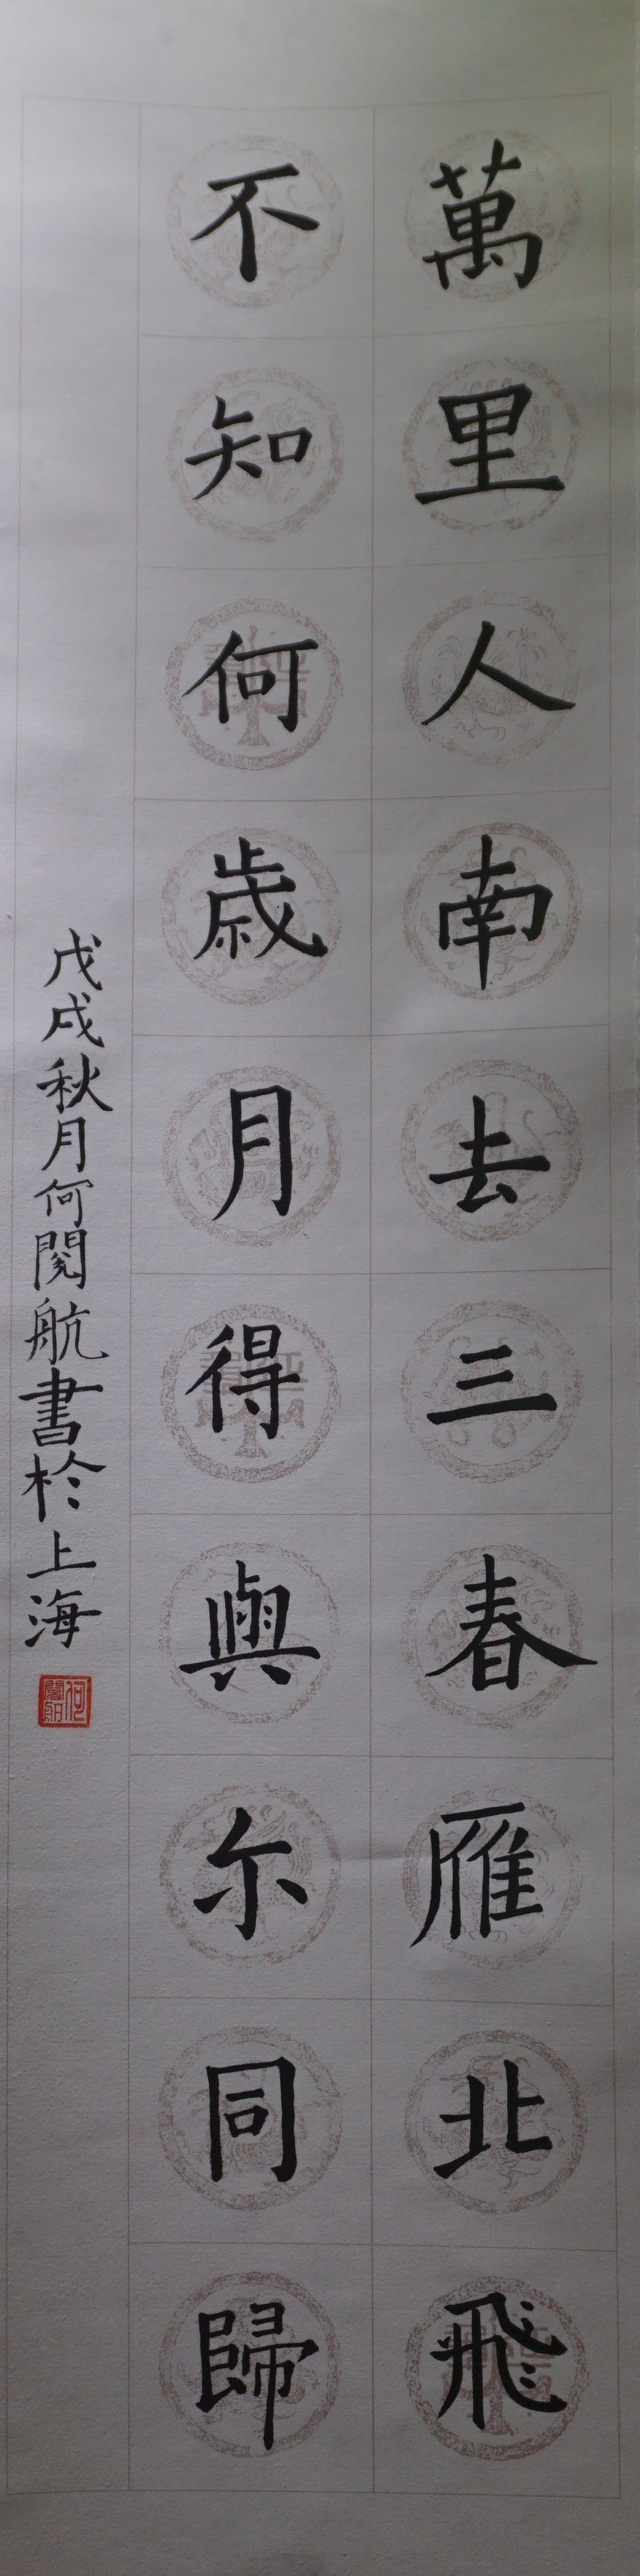 萬里人南去三春雁北飛
不知何歳月得與尓同歸
戊戌秋月何閱航書於上海